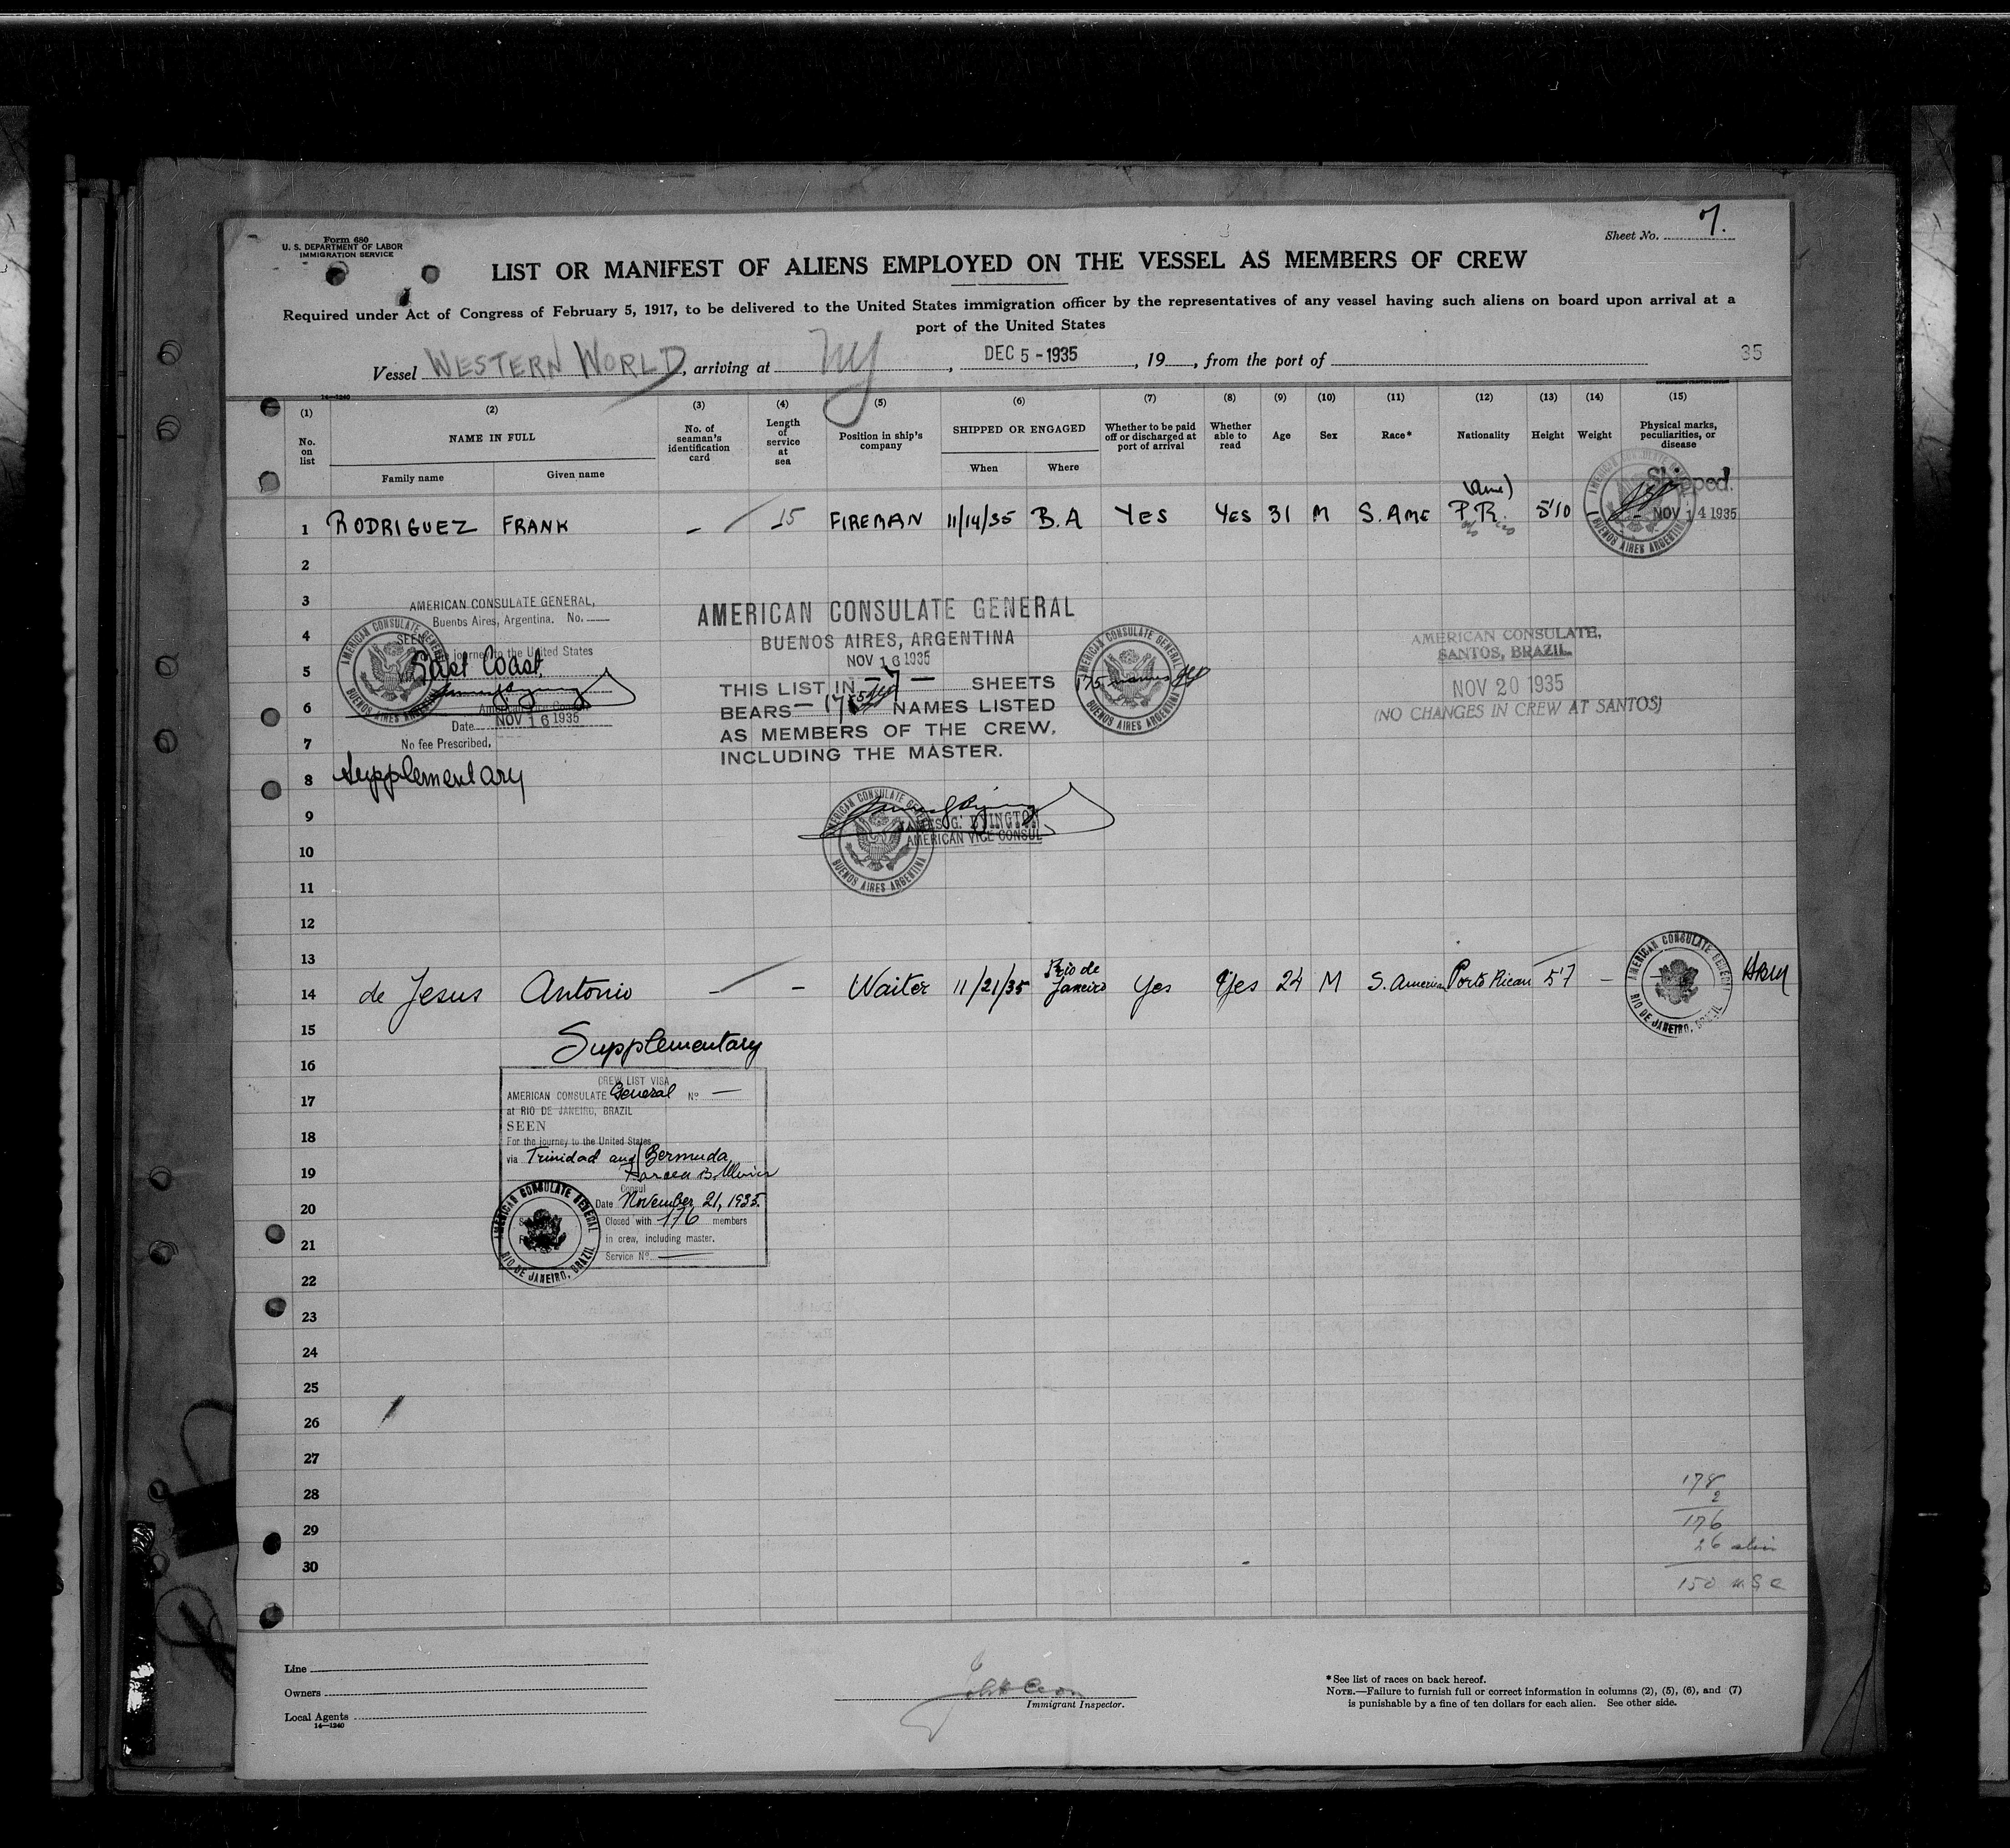 Form 680
U. S. DEPARTMENT OF LABOR
IMMIGRATION SERVICE
Sheet No. 7.
LIST OR MANIFEST OF ALIENS EMPLOYED ON THE VESSEL AS MEMBERS OF CREW
Required under Act of Congress of February 5, 1917, to be delivered to the United States immigration officer by the representatives of any vessel having such aliens on board upon arrival at a
port of the United States
Vessel WESTERN WORLD, arriving at NY, DEC 5 - 1935, 19 , from the port of
35
14—1240
(1) (2) (3) (4) (5) (6) (7) (8) (9) (10) (11) (12) (13) (14) (15)
No. on list
NAME IN FULL
Family name Given name
No. of seaman's identification card
Length of service at sea
Position in ship's company
SHIPPED OR ENGAGED
When Where
Whether to be paid off or discharged at port of arrival
Whether able to read
Age Sex Race* Nationality Height Weight
Physical marks, peculiarities, or disease
1 RODRIGUEZ FRANK - 15 FIREMAN 11/14/35 B.A YES YES 31 M S. AME P.R. 5'10
Shipped.
NOV 14 1935
AMERICAN CONSULATE GENERAL
BUENOS AIRES ARGENTINA
2
3
4
5
6
7
8
9
10
11
12
13
AMERICAN CONSULATE GENERAL,
Buenos Aires, Argentina. No.
SEEN
journey to the United States
East Coast
Date NOV 16 1935
No fee Prescribed.
Supplementary
AMERICAN CONSULATE GENERAL
BUENOS AIRES ARGENTINA
AMERICAN CONSULATE GENERAL
BUENOS AIRES, ARGENTINA
NOV 16 1935
THIS LIST IN — 7 — SHEETS
BEARS — 175 NAMES LISTED
AS MEMBERS OF THE CREW,
INCLUDING THE MASTER.
AMERICAN CONSULATE GENERAL
175 names
BUENOS AIRES ARGENTINA
AMERICAN CONSULATE,
SANTOS, BRAZIL.
NOV 20 1935
(NO CHANGES IN CREW AT SANTOS)
AMERICAN CONSULATE GENERAL
BUENOS AIRES ARGENTINA
JAMES G. BYINGTON
AMERICAN VICE CONSUL
14 de Jesus Antonio - Waiter 11/21/35 Rio de Janeiro Yes Yes 24 M Porto Rican 5'7 -
AMERICAN CONSULATE GENERAL
RIO DE JANEIRO, BRAZIL
15
16
17
18
19
20
21
22
23
24
25
26
27
28
29
30
Supplementary
CREW LIST VISA
AMERICAN CONSULATE General No —
at RIO DE JANEIRO, BRAZIL
SEEN
For the journey to the United States
via Trinidad and Bermuda
Consul
Date November 21, 1935.
Closed with 176 members
in crew, including master.
Service No —
AMERICAN CONSULATE GENERAL
RIO DE JANEIRO, BRAZIL
178
2
176
26 alien
150 U S C
Line
Owners
Local Agents
14—1240
Immigrant Inspector.
* See list of races on back hereof.
NOTE.—Failure to furnish full or correct information in columns (2), (5), (6), and (7)
is punishable by a fine of ten dollars for each alien. See other side.